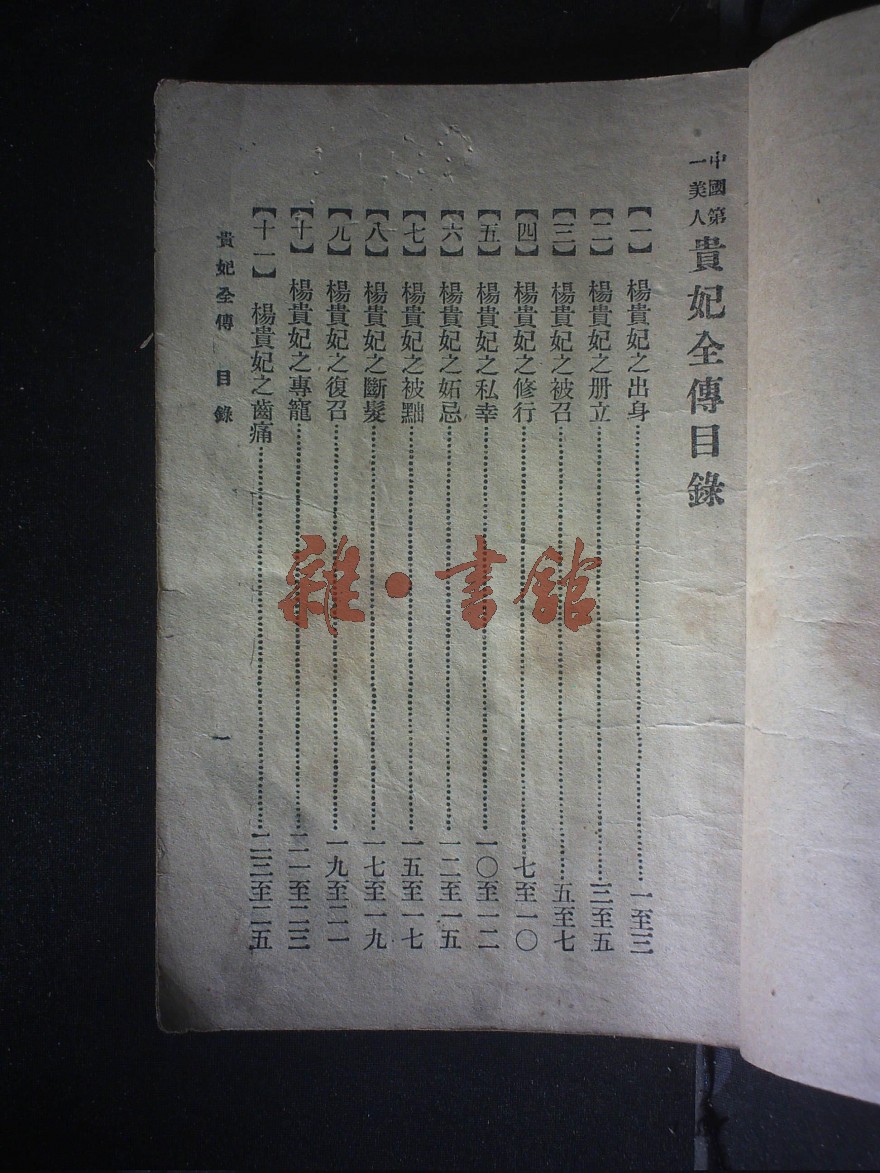 中國第一美人 貴妃全傳目錄
【一】 楊貴妃之出身 一至三
【二】 楊貴妃之册立 三至五
【三】 楊貴妃之被召 五至七
【四】 楊貴妃之修行 七至一〇
【五】 楊貴妃之私幸 一〇至一二
【六】 楊貴妃之妬忌 一二至一五
【七】 楊貴妃之被黜 一五至一七
【八】 楊貴妃之斷髮 一七至一九
【九】 楊貴妃之復召 一九至二一
【十】 楊貴妃之專寵 二一至二三
【十一】 楊貴妃之齒痛 二三至二五
貴妃全傳 目錄 一
雜·書館